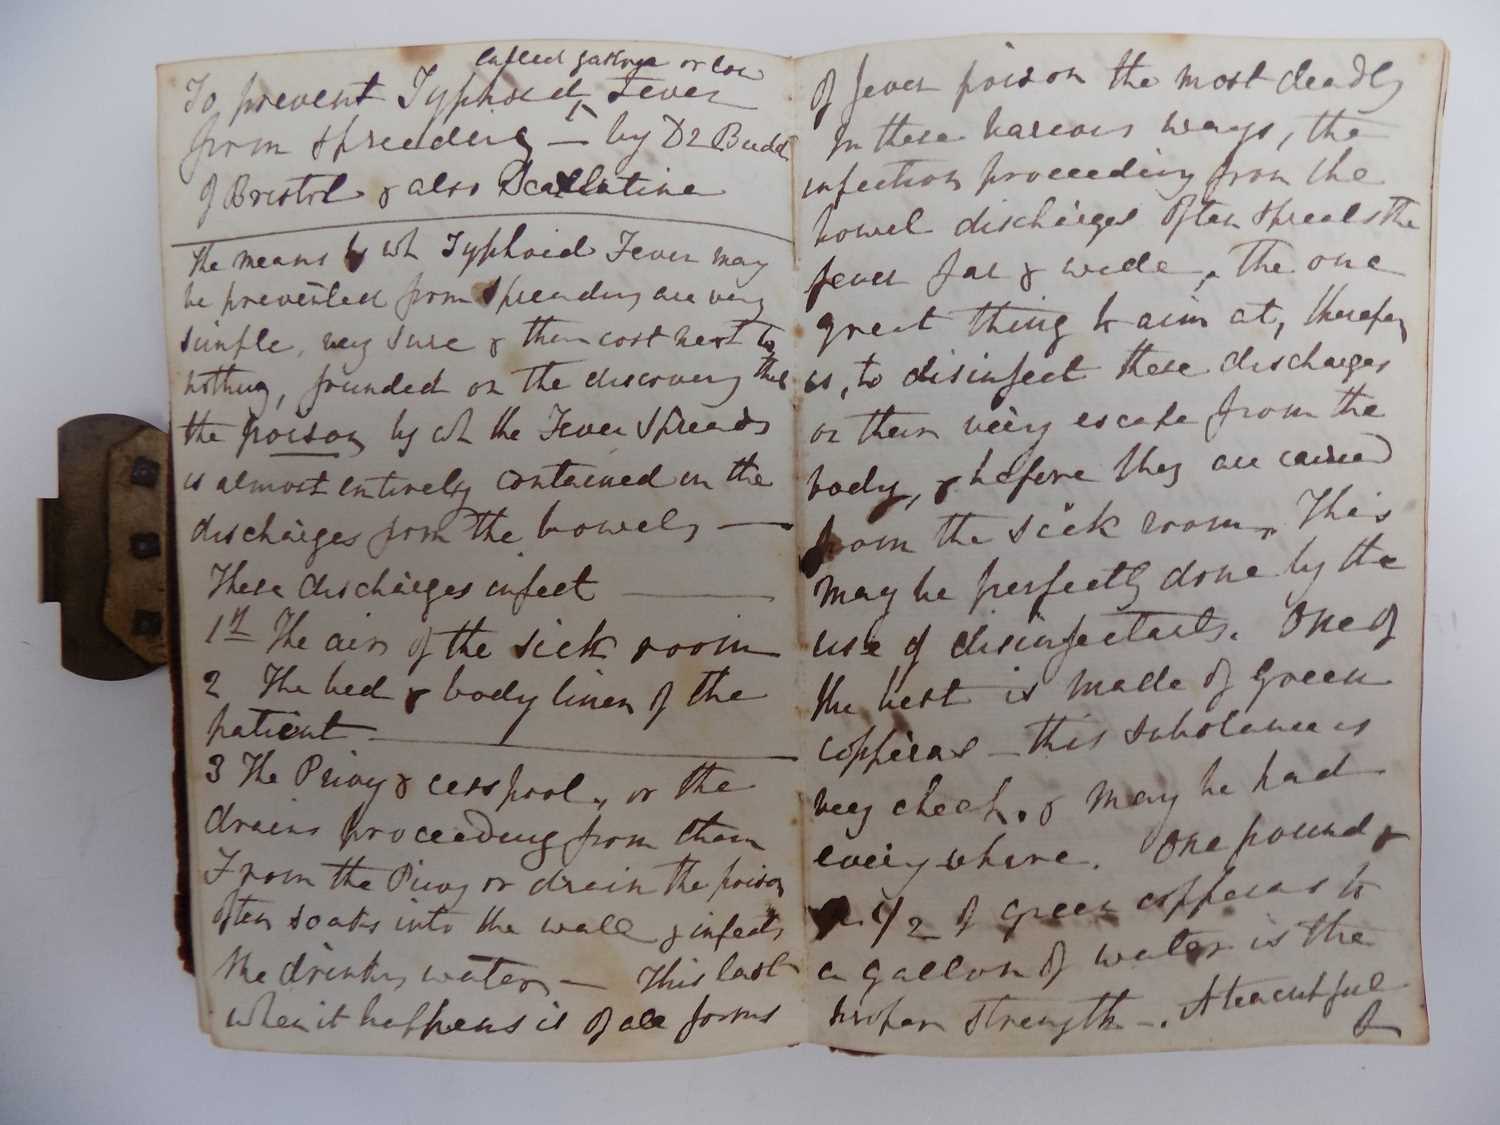 called gastric or low
To prevent Typhoid ^ Fever
from spreading — by Dr Budd
of Bristol & also Scarlatina
The means by wh Typhoid Fever may
be prevented from spreading are very
simple, very sure & their cost next to
nothing, founded on the discovery that
the poison by wh the Fever spreads
is almost entirely contained in the
discharges from the bowels —
These discharges infect —
1st The air of the sick room
2 The bed & body linen of the
patient —
3 The Privy & cesspool, or the
drains proceeding from them
From the Privy or drain the poison
often soaks into the well & infects
the drinking water, — This last
when it happens is of all forms
of fever poison the most deadly
In these various ways, the
infection proceeding from the
bowel discharges often spreads the
fever far & wide. The one
great thing to aim at, therefore
is, to disinfect these discharges
on their very escape from the
body, & before they are carried
from the sick room. This
may be perfectly done by the
use of disinfectants. One of
the best is made of green
copperas — this substance is
very cheap, & may be had
everywhere. One pound &
1/2 of green copperas to
a gallon of water is the
proper strength —. A teacupful
of